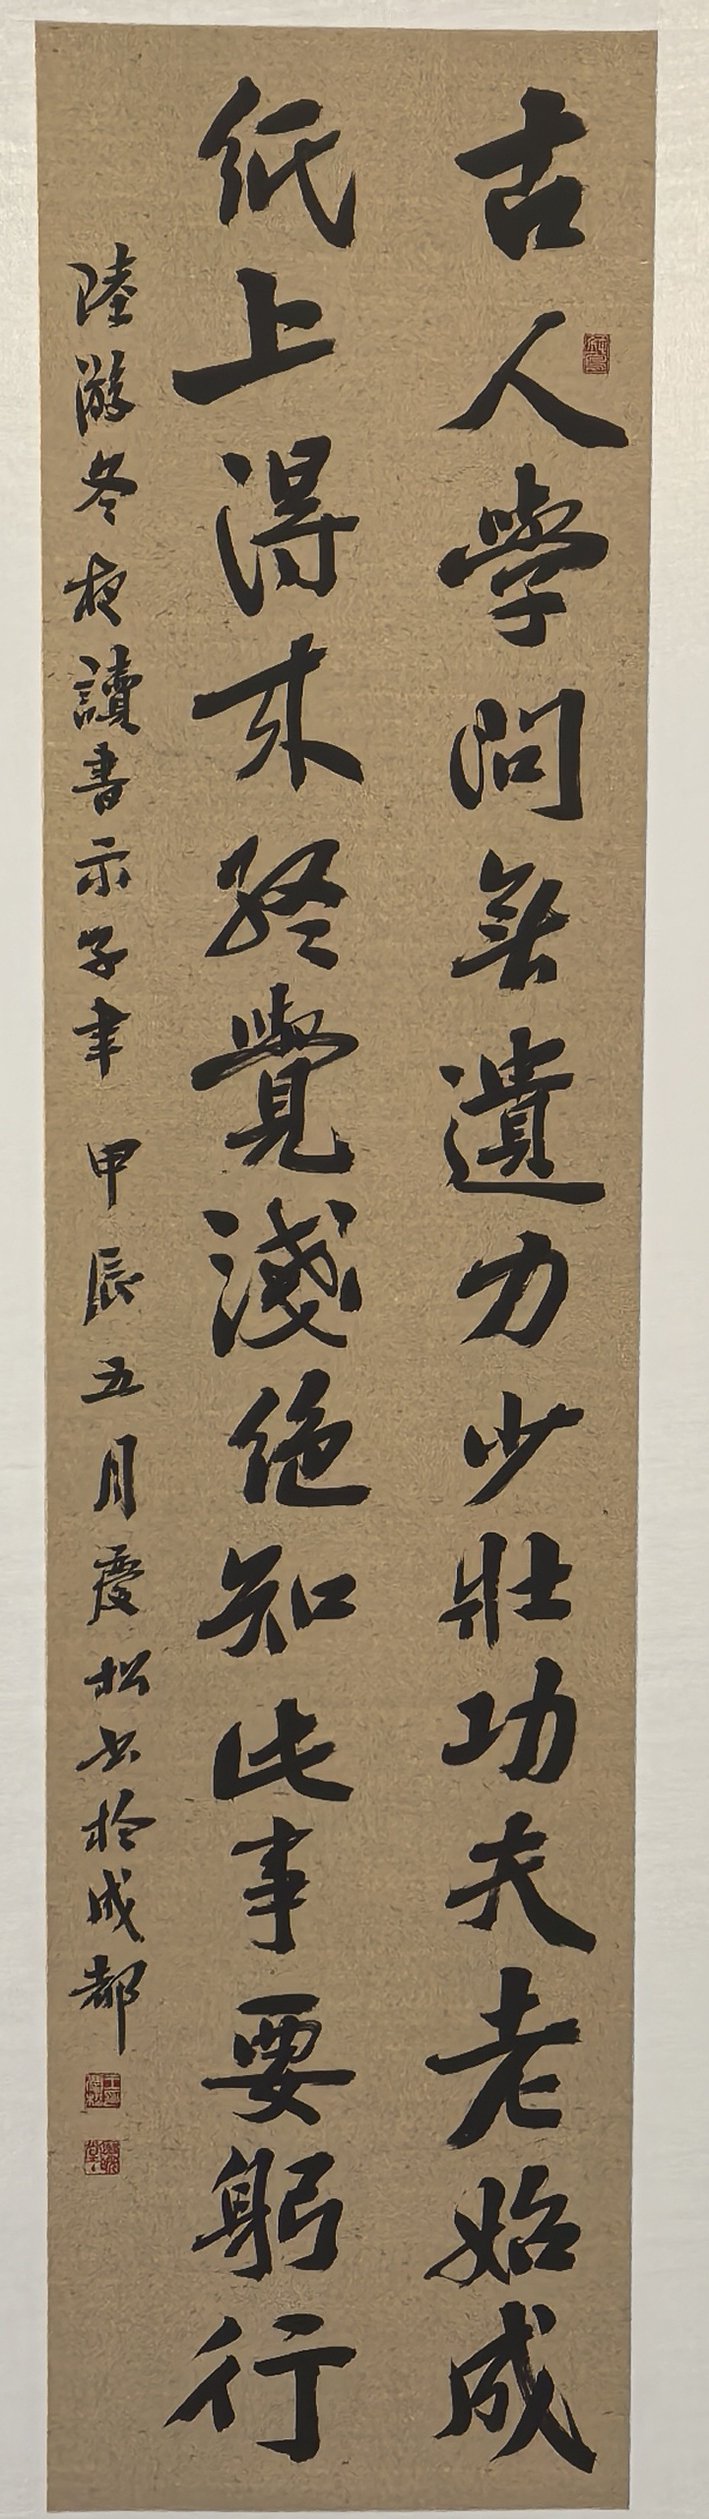 古人學問無遺力少壯功夫老始成
紙上得来終覺淺絕知此事要躬行
陸游冬夜讀書示子聿 甲辰五月慶松书於成都